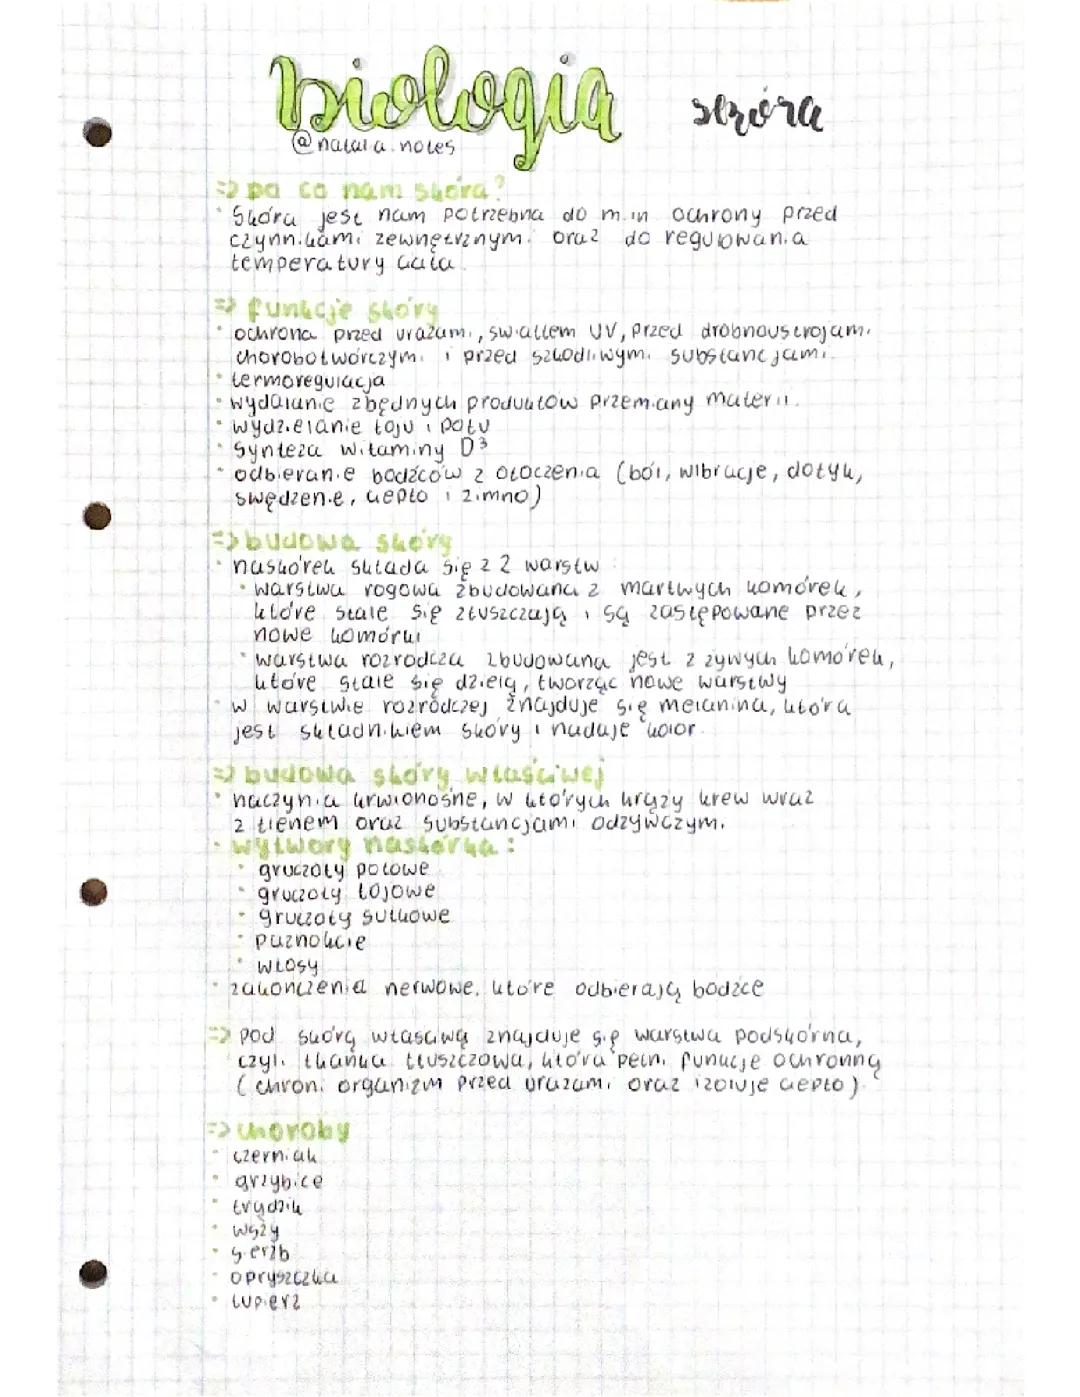 biologia skóra
@natala.notes
=> po co nam skóra?
• Skóra jest nam potrzebna do m.in ochrony przed
czynnikami zewnętrznymi oraz do regulowania
temperatury ciała.
=> funkcje skóry
• ochrona przed urazami, światłem UV, przed drobnoustrojami
chorobotwórczymi i przed szkodliwymi substancjami.
• termoregulacja
• wydalanie zbędnych produktów przemiany materii.
• wydzielanie łoju i potu
• synteza witaminy D3
• odbieranie bodźców z otoczenia (ból, wibracje, dotyk,
swędzenie, ciepło i zimno)
=> budowa skóry
• naskórek składa się z 2 warstw:
• warstwa rogowa zbudowana z martwych komórek,
które stale się złuszczają i są zastępowane przez
nowe komórki
• warstwa rozrodcza zbudowana jest z żywych komórek,
które stale się dzielą, tworząc nowe warstwy
• w warstwie rozrodczej znajduje się melanina, która
jest składnikiem skóry i nadaje kolor.
=> budowa skóry właściwej
• naczynia krwionośne, w których krąży krew wraz
z tlenem oraz substancjami odżywczymi.
• wytwory naskórka:
• gruczoły potowe
• gruczoły łojowe
• gruczoły sutkowe
• paznokcie
• włosy
• zakończenia nerwowe, które odbierają bodźce
=> pod skórą właściwą znajduje się warstwa podskórna,
czyli tkanka tłuszczowa, która pełni funkcję ochronną
(chroni organizm przed urazami oraz izoluje ciepło).
=> choroby
• czerniak
• grzybice
• trądzik
• wszy
• świerzb
• opryszczka
• łupież